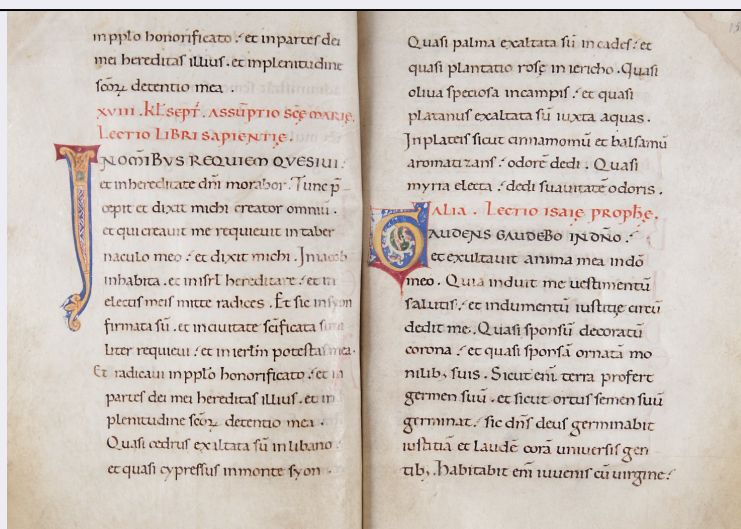 in pplo honorificato . et in partes dei
mei hereditas illius . et in plenitudine
scoꝝ detentio mea .
XVIII . kl. SEPT̄ . ASSŪPTIO SCĘ MARIĘ.
LECTIO LIBRI SAPIENTIĘ .
IN OMIBVS REQUIEM QVESIVI :
et in hereditate dn̄i morabor . Tunc p̄
cepit et dixit michi creator omniū .
et qui creauit me requieuit in taber
naculo meo . et dixit michi . In iacob
inhabita . et in isrl̄ hereditare . et in
electis meis mitte radices . Et sic in syon
firmata sū . et in ciuitate sc̄ificata
liter requieui . et in ierl̄m potestas mea .
Et radicaui in pplo honorificato . et in
partes dei mei hereditas illius . et in
plenitudine scoꝝ detentio mea .
Quasi cedrus exaltata sū in libano .
et quasi cypressus in monte syon .
Quasi palma exaltata sū in cades . et
quasi plantatio rosę in iericho . Quasi
oliua speciosa in campis . et quasi
platanus exaltata sū iuxta aquas .
In plateis sicut cinnamomū et balsamū
aromatizans . odorē dedi . Quasi
myrra electa . dedi suauitatē odoris .
ALIA . LECTIO ISAIĘ PROPHĘ .
GAUDENS GAUDEBO IN DN̄O .
et exultauit anima mea in dō
meo . Quia induit me uestimentū
salutis . et indumentū iustitię circū
dedit me . Quasi sponsū decoratū
corona . et quasi sponsā ornatā mo
nilib; suis . Sicut eni̅ terra profert
germen suū . et sicut ortus semen suū
germinat . sic dn̄s deus germinabit
iustitiā et laudē corā uniuersis gen
tib; . Habitabit eni̅ iuuenis cū uirgine .